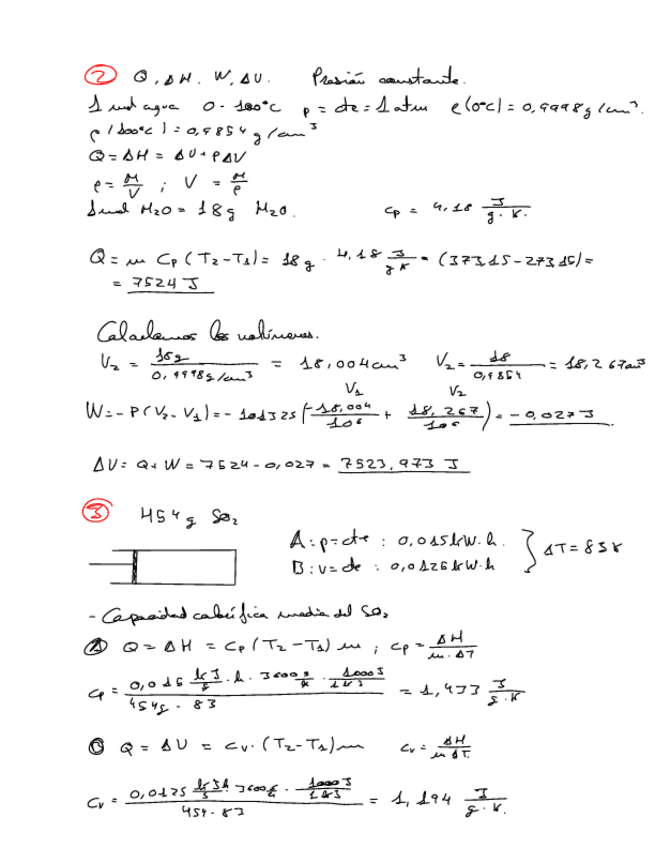 2 Q, ΔH, W, ΔU. Presión constante.
1 mol agua 0 - 100°C p = cte = 1 atm ρ(0°C) = 0,9998 g/cm³.
ρ(100°C) = 0,9854 g/cm³
Q = ΔH = ΔU + PΔV
ρ = M/V ; V = M/ρ
1 mol H₂O = 18 g H₂O. Cp = 4,18 J/g·K.
Q = m Cp (T₂-T₁) = 18 g · 4,18 J/gK · (373,15 - 273,15) =
= 7524 J
Calculamos los volúmenes.
V₂ = 18g/0,9998 g/cm³ = 18,004 cm³ V₂ = 18/0,9854 = 18,267 cm³
V₁ V₂
W = - P(V₂ - V₁) = - 101325 (-18,004/10⁶ + 18,267/10⁶) = -0,027 J
ΔU = Q + W = 7524 - 0,027 = 7523,973 J
3 454 g SO₂
A: p = cte : 0,015 kW.h.
B: v = cte : 0,0126 kW.h
} ΔT = 83 K
- Capacidad calorífica media del SO₂
A Q = ΔH = Cp (T₂ - T₁) m ; Cp = ΔH/m·ΔT
Cp = 0,015 kJ/s · h · 3600 s/h · 1000 J/1 kJ / 454g · 83 = 1,433 J/g·K
Q = ΔU = Cv · (T₂ - T₁) m Cv = ΔH/m ΔT
Cv = 0,0125 kJ/s h 3600 s/h · 1000 J/1 kJ / 454 · 83 = 1,194 J/g·K.